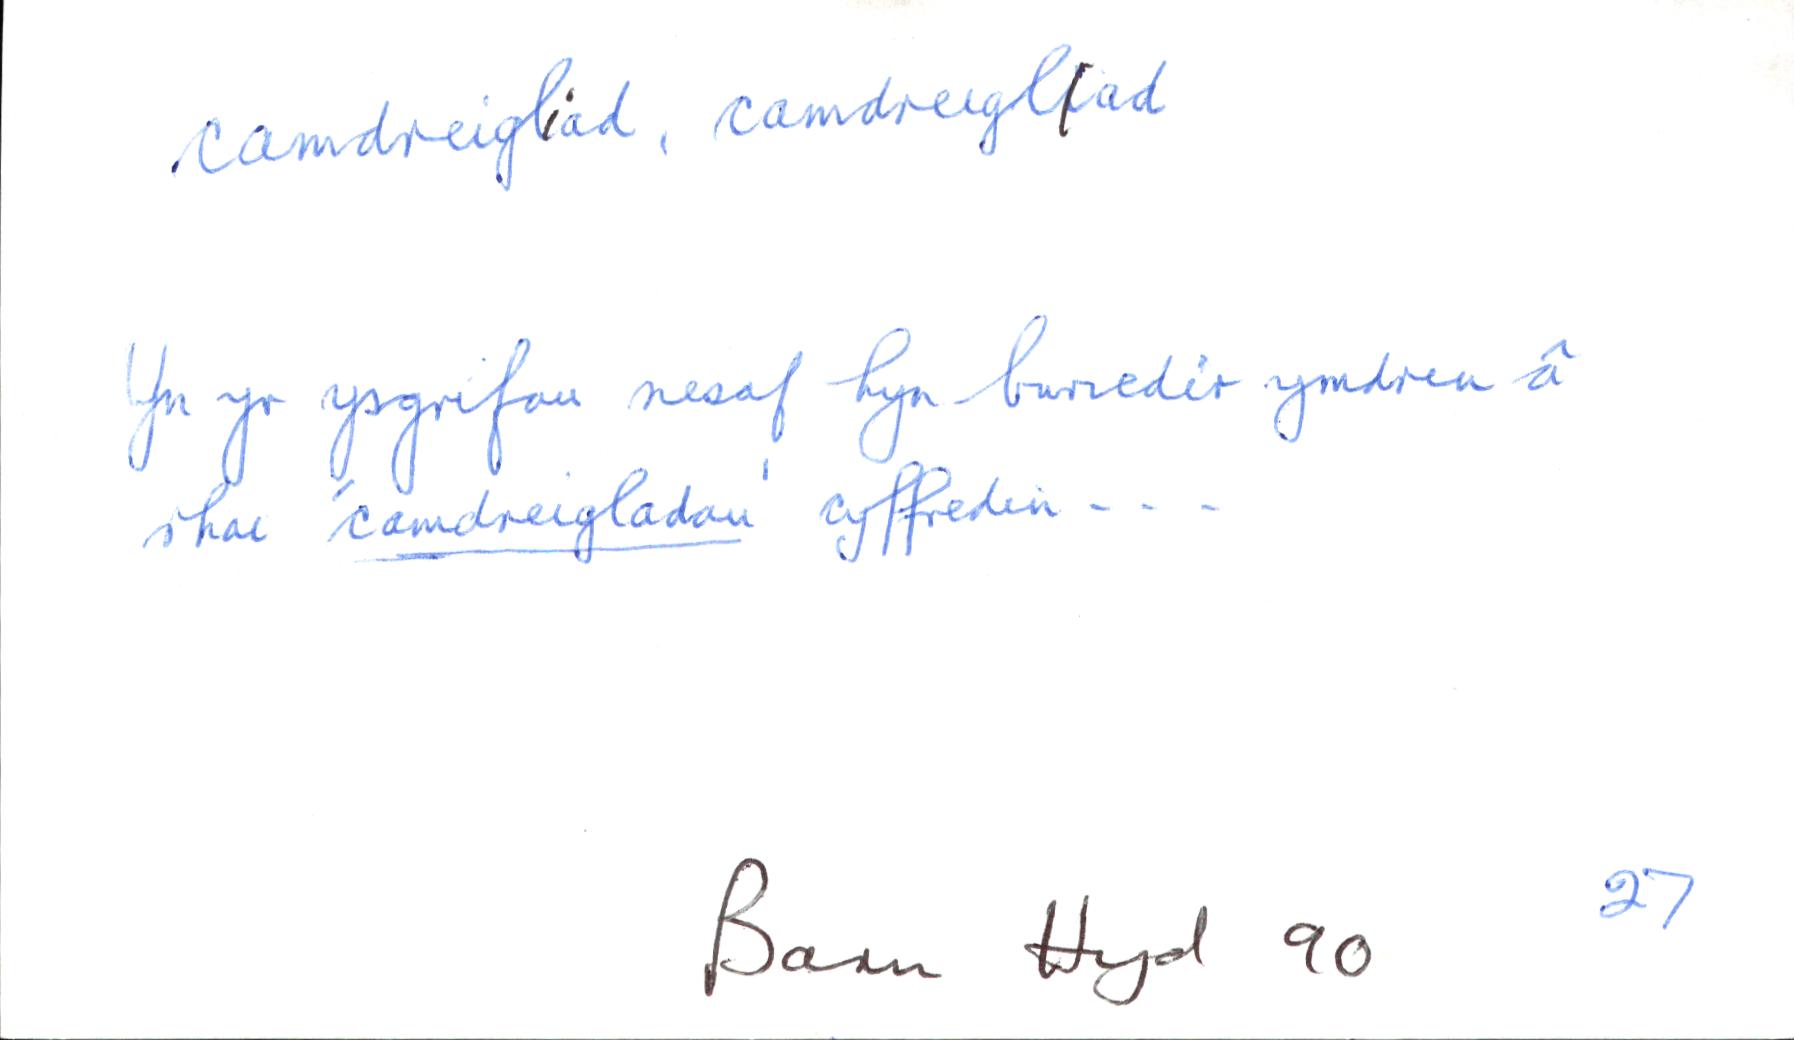 camdreigliad, camdreigliad
Yn yr ysgrifau nesaf hyn bwriedir ymdrin â
rhai 'camdreigladau' cyffredin - - -
Barn Hyd 90 27